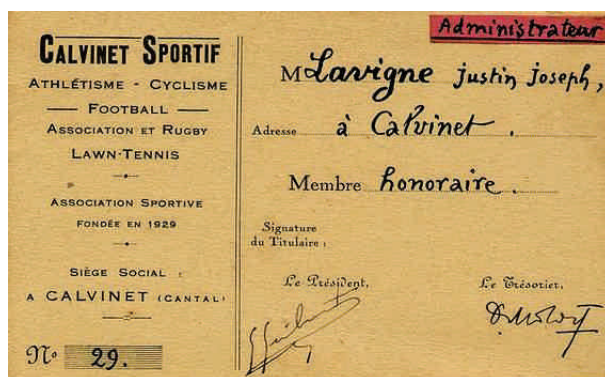 CALVINET SPORTIF
ATHLÉTISME - CYCLISME
FOOTBALL
ASSOCIATION ET RUGBY
LAWN-TENNIS
ASSOCIATION SPORTIVE
FONDÉE EN 1929
SIÈGE SOCIAL :
A CALVINET (CANTAL)
Nº 29.
Administrateur
M Lavigne justin joseph,
Adresse à Calvinet.
Membre honoraire.
Signature
du Titulaire :
Le Président,
Le Trésorier,